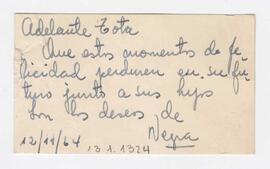 Adelante Tota
Que estos momentos de fe
licidad perduren en su fu
turo junto a sus hijos
son los deseos de
Negra
12/11/64
13.1.1324